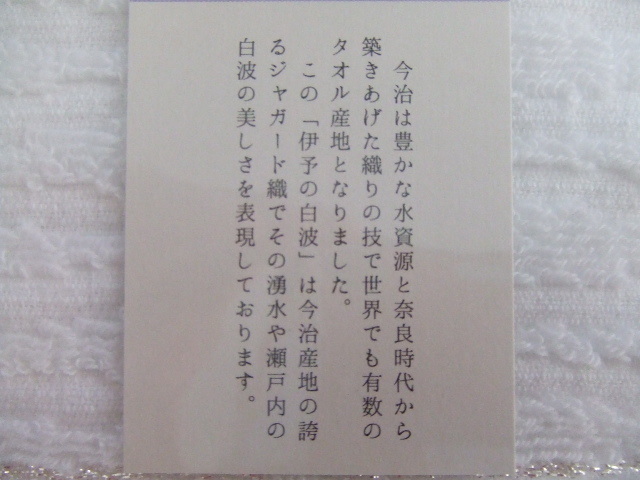 今治は豊かな水資源と奈良時代から
築きあげた織りの技で世界でも有数の
タオル産地となりました。
この「伊予の白波」は今治産地の誇
るジャガード織でその湧水や瀬戸内の
白波の美しさを表現しております。